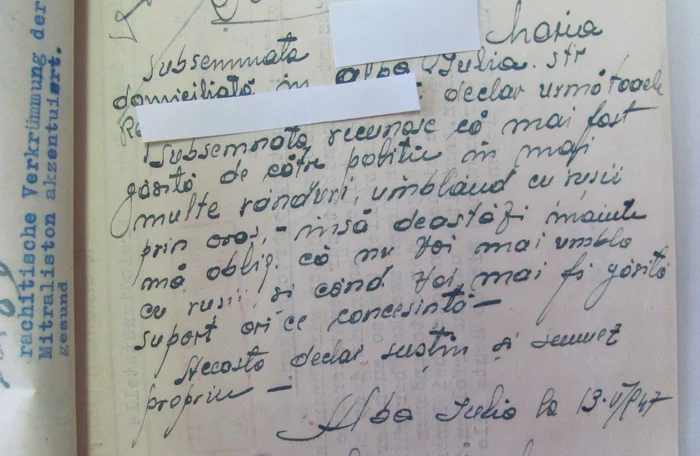 rachitische Verkrümmung der
Mitraliston akzentuiert.
gesund
Maria
Subsemnata
domiciliată în Alba Iulia. str
declar următoarele
Subsemnata recunosc că mai fost
găsită de către politie în mai
multe rânduri, umblând cu rusii
prin oraș, - însă deastăzi înainte
mă oblig. că nu voi mai umbla
cu rusii și când voi mai fi găsită
suport ori ce concesintă -
Accasta declar susțin și semnez
propriu -
Alba Iulia la 13.VI/947